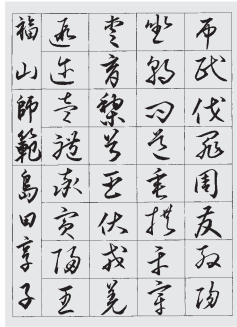 弔民伐罪周發殷湯
坐朝問道垂拱平章
愛育黎首臣伏戎羌
遐迩壹體率賓歸王
福山師範島田享子